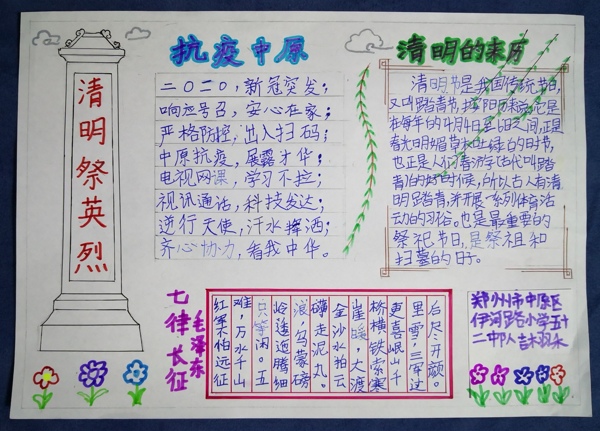 清明祭英烈
抗疫中原
二〇二〇，新冠突发；
响应号召，安心在家；
严格防控，出入扫码；
中原抗疫，展露才华；
电视网课，学习不拉；
视讯通话，科技发达；
逆行天使，汗水挥洒；
齐心协力，看我中华。
清明的来历
清明节是我国传统节日，
又叫踏青节，按阳历来说，它是
在每年的4月4日至6日之间，正是
春光明媚草木吐绿的时节，
也正是人们春游(古代叫踏
青)的好时候，所以古人有清
明踏青，并开展一系列体育活
动的习俗。也是最重要的
祭祀节日，是祭祖和
扫墓的日子。
七律长征
毛泽东
红军不怕远征
难，万水千山
只等闲。五
岭逶迤腾细
浪，乌蒙磅
礴走泥丸。
金沙水拍云
崖暖，大渡
桥横铁索寒
更喜岷山千
里雪，三军过
后尽开颜。
郑州市中原区
伊河路小学五十
二中队